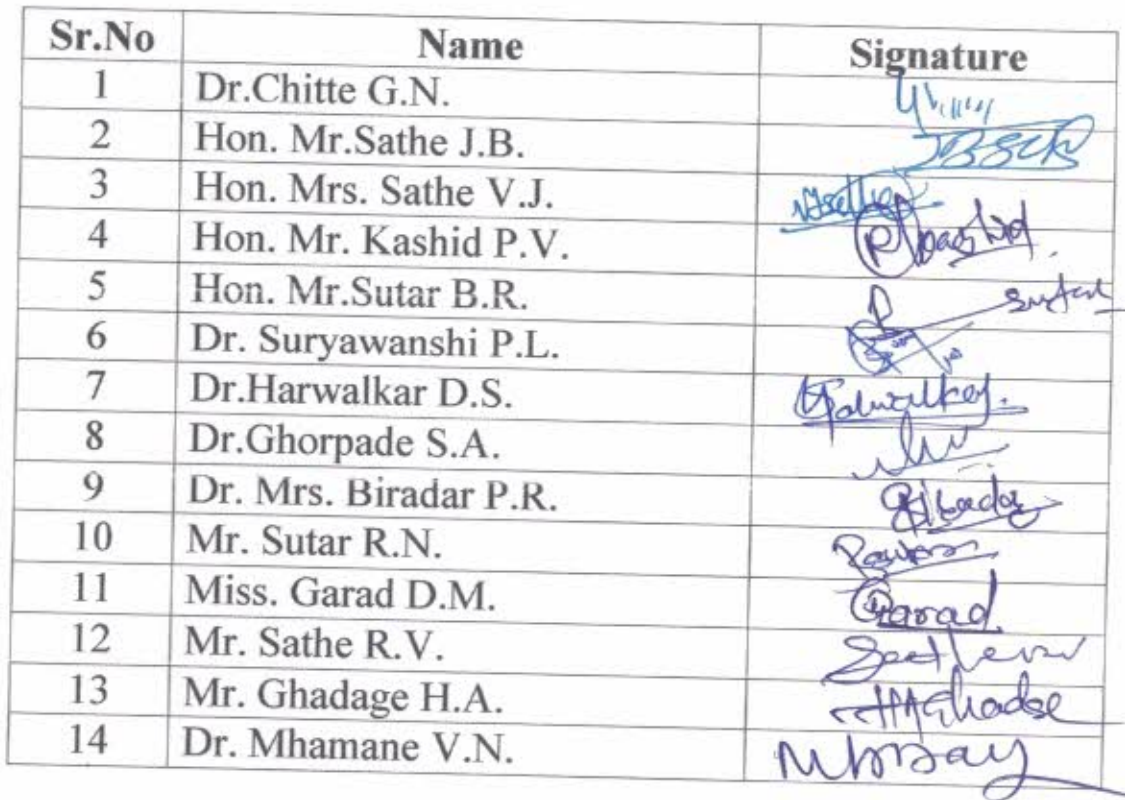 Sr.No Name Signature
1 Dr.Chitte G.N.
2 Hon. Mr.Sathe J.B.
3 Hon. Mrs. Sathe V.J. VJSathe
4 Hon. Mr. Kashid P.V.
5 Hon. Mr.Sutar B.R. Sutar
6 Dr. Suryawanshi P.L.
7 Dr.Harwalkar D.S.
8 Dr.Ghorpade S.A.
9 Dr. Mrs. Biradar P.R.
10 Mr. Sutar R.N.
11 Miss. Garad D.M. Garad
12 Mr. Sathe R.V.
13 Mr. Ghadage H.A.
14 Dr. Mhamane V.N.